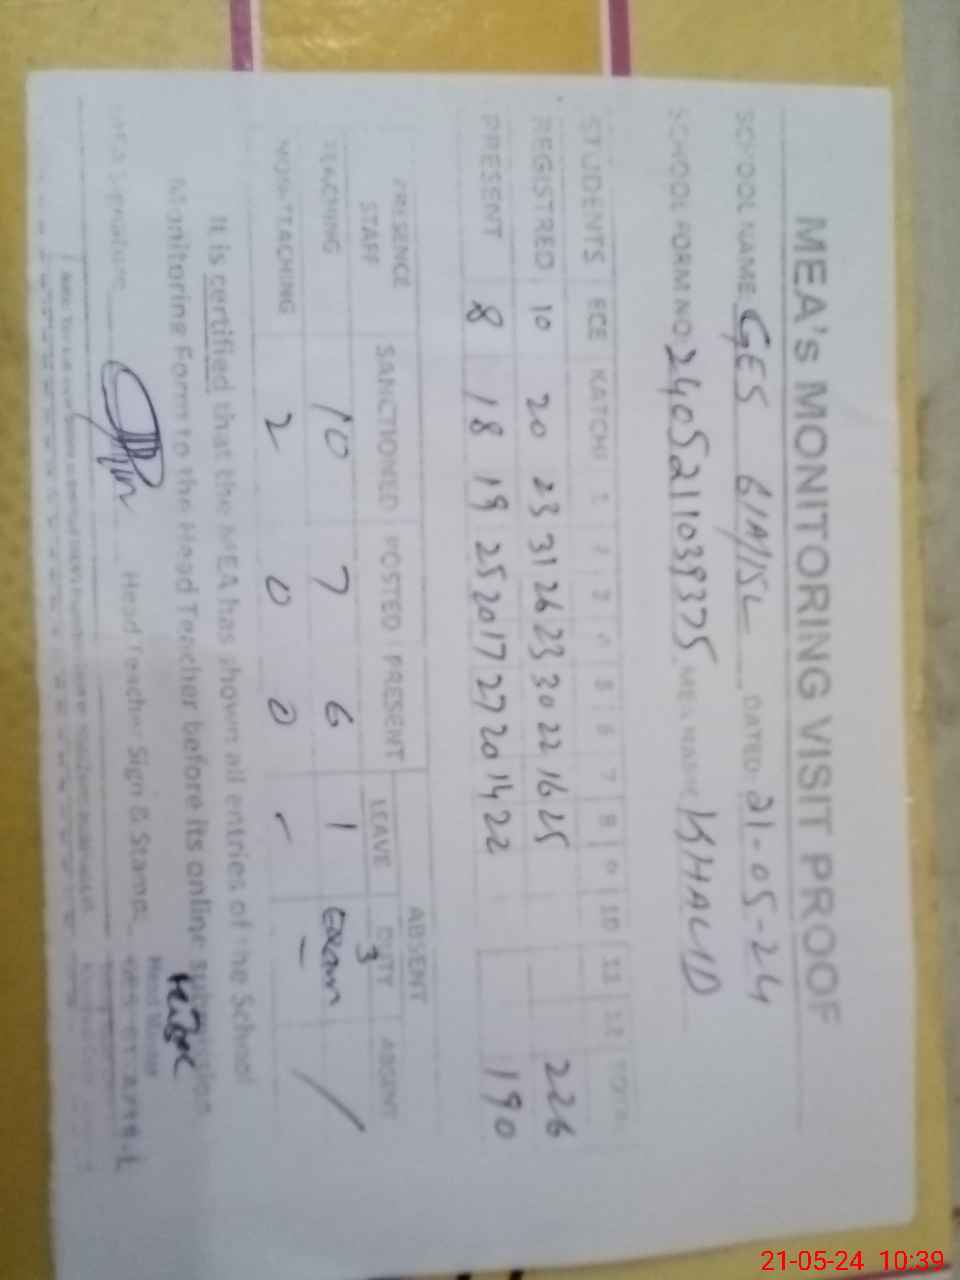 MEA's MONITORING VISIT PROOF
SCHOOL NAME: GES 61/A/15L DATED: 21-05-24
SCHOOL FORM NO: 2405211039375 MEA NAME KHALID
STUDENTS ECE KATCHI 1 2 3 4 5 6 7 8 9 10 11 12 TOTAL
REGISTRED 10 20 23 31 26 23 30 22 16 25 226
PRESENT 8 18 19 25 20 17 27 20 14 22 190
PRESENCE STAFF SANCTIONED POSTED PRESENT ABSENT
LEAVE DUTY ABSENT
3
TEACHING 10 7 6 1 Exam /
NON-TEACHING 2 0 0 - -
It is certified that the MEA has shown all entries of the School
Monitoring Form to the Head Teacher before its online submission
MEA Signature Head Teacher Sign & Stamp
21-05-24 10:39